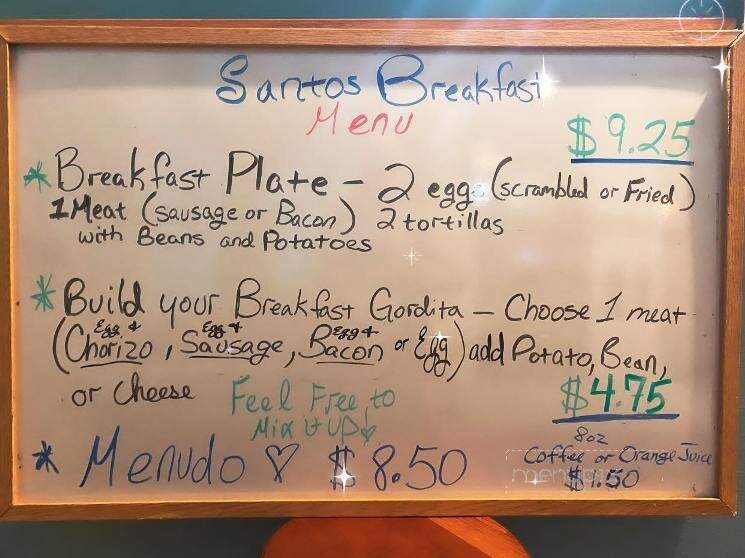 Santos Breakfast
Menu
$9.25
* Breakfast Plate - 2 eggs (scrambled or Fried)
1 Meat (sausage or Bacon) 2 tortillas
with Beans and Potatoes
* Build your Breakfast Gordita - Choose 1 meat
Egg & Egg & Egg &
(Chorizo, Sausage, Bacon or Egg) add Potato, Bean,
or Cheese
$4.75
Feel Free to
Mix it up ♡
* Menudo ♡ $8.50
8oz
Coffee or Orange Juice
$1.50